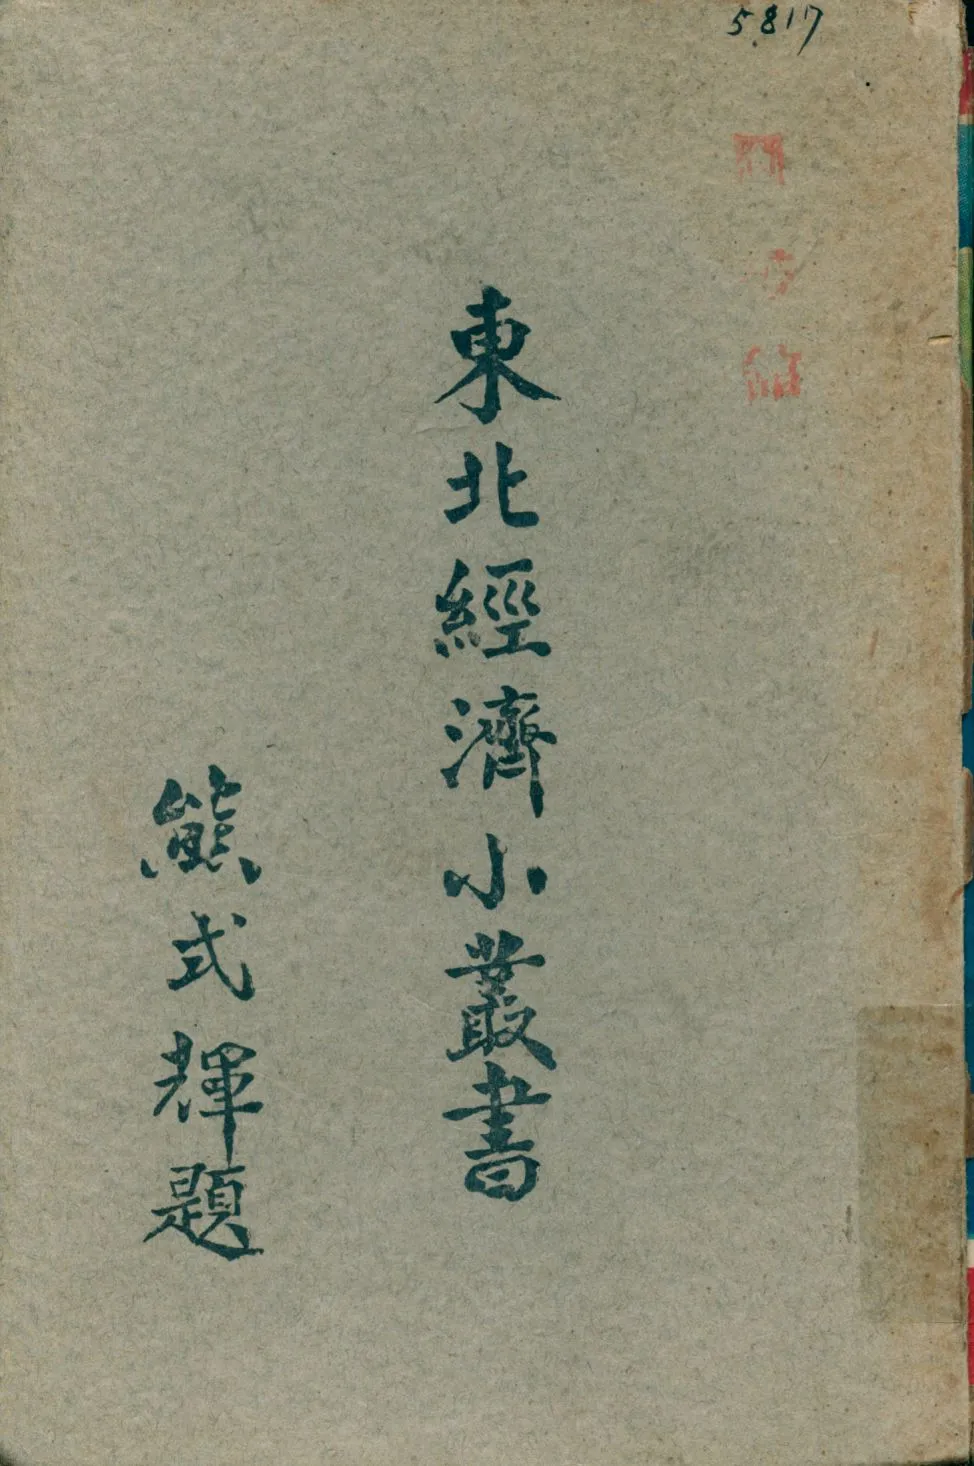 5817
東北經濟小叢書
熊式輝題